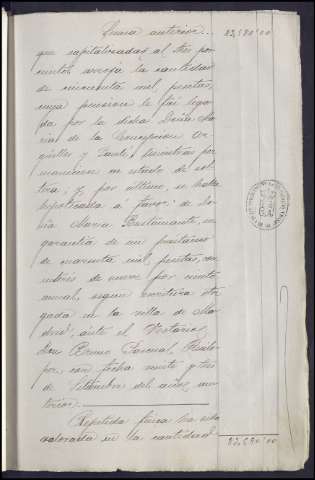 Suma anterior... 83,580'00
que capitalizadas al tres por
ciento, arroja la cantidad
de cincuenta mil, pesetas,
cuya pension le fué lega-
da por la dicha Doña Ma-
ria de la Concepcion Ar-
güelles y Zante, mientras per-
manezca en estado de sol-
tera; y, por último, se halla
hipotecada á favor de Do-
ña Maria Bustamante, en
garantia de un prestamo
de cuarenta mil, pesetas, con
interés de nueve por ciento
anual, segun escritura otor-
gada en la villa de Ma-
drid, ante el Notario,
Don Bruno Pascual, Ruilo-
pez con fecha veinte y tres
de Setiembre del año, an-
terior.
Repetida finca ha sido
valorada en la cantidad
83,580'00